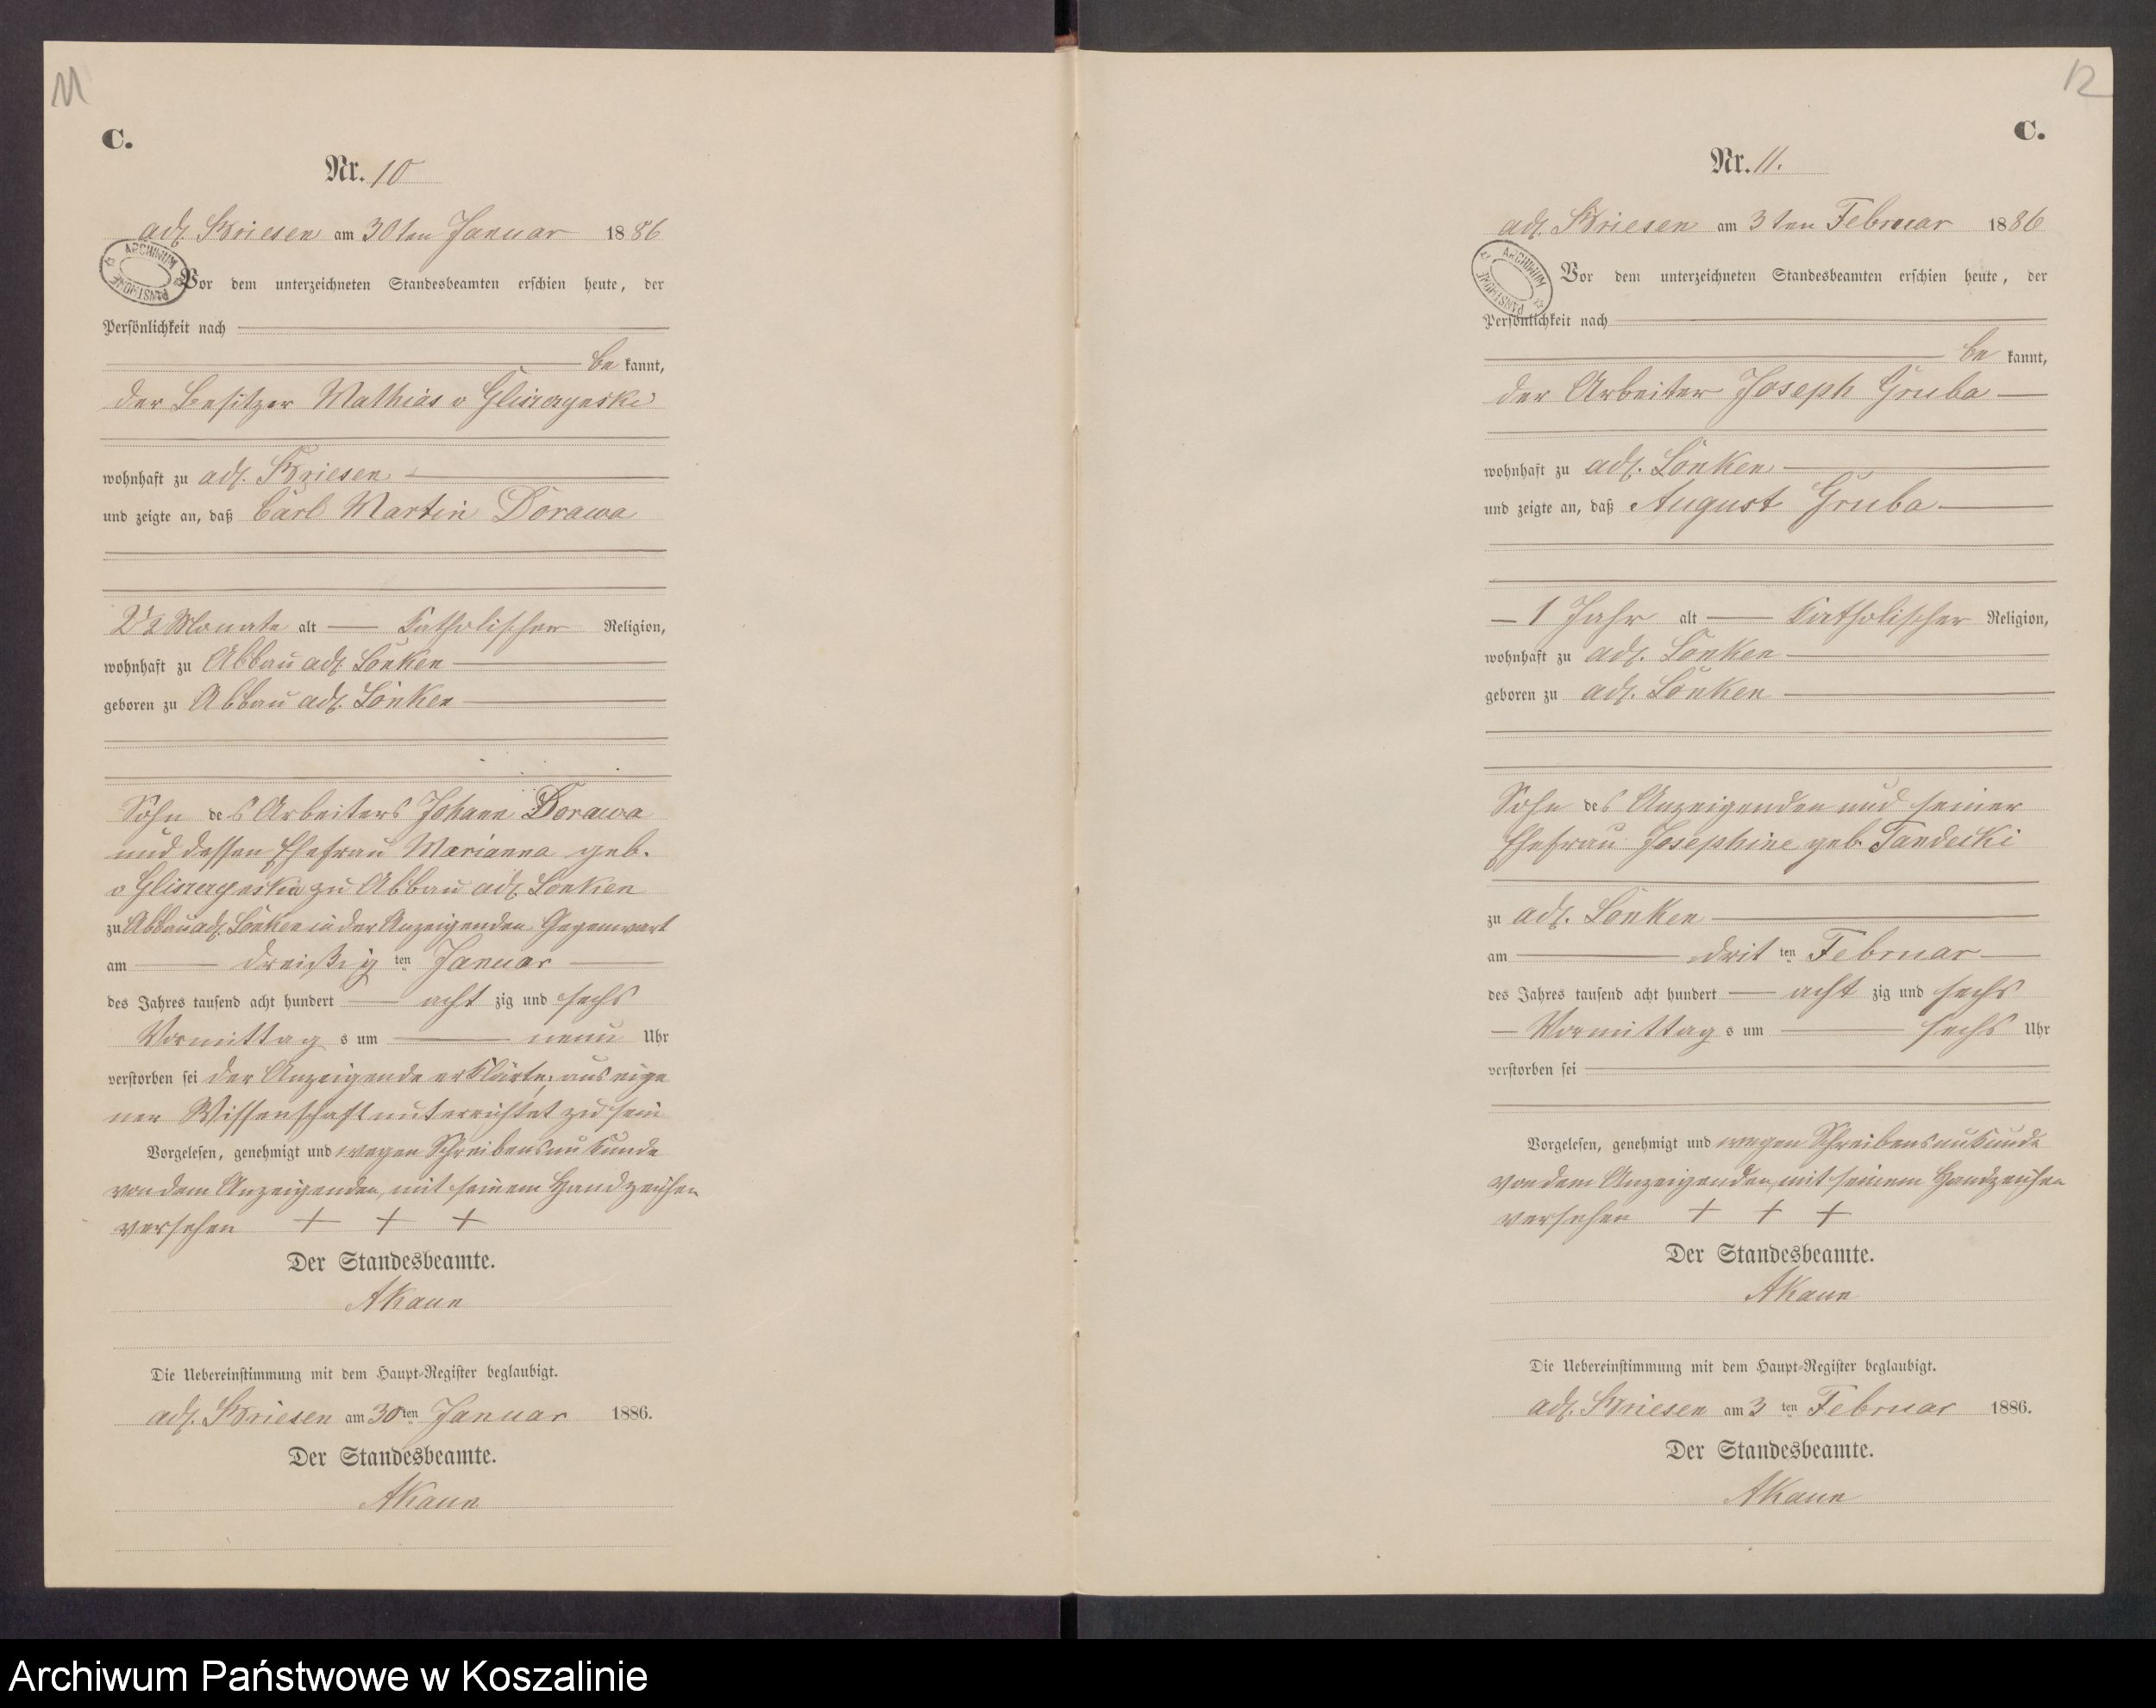 11
C.
Nr. 10
adl. Briesen am 30ten Januar 1886
ARCHIWUM PAŃSTWOWE
Vor dem unterzeichneten Standesbeamten erschien heute, der
Persönlichkeit nach
be kannt,
der Besitzer Mathias v
wohnhaft zu adl. Briesen
und zeigte an, daß Carl Martin Dorawa
2 1/2 Monate alt katholischer Religion,
wohnhaft zu Abbau adl. Lonken
geboren zu Abbau adl. Lonken
Sohn des Arbeiters Johann Dorawa
und dessen Ehefrau Marianna geb.
v zu Abbau adl. Lonken
zu Abbau adl. Lonken in der Anzeigenden Gegenwart
am dreißig ten Januar
des Jahres tausend acht hundert acht zig und sechs
Vormittag s um neun Uhr
verstorben sei der Anzeigende erklärte, aus eige
ner Wissenschaft unterrichtet zu sein
Vorgelesen, genehmigt und wegen Schreibensunkunde
von dem Anzeigenden mit seinem Handzeichen
versehen + + +
Der Standesbeamte.
AKaun
Die Uebereinstimmung mit dem Haupt-Register beglaubigt.
adl. Briesen am 30ten Januar 1886.
Der Standesbeamte.
AKaun
12
C.
Nr. 11.
adl. Briesen am 3ten Februar 1886
ARCHIWUM PAŃSTWOWE
Vor dem unterzeichneten Standesbeamten erschien heute, der
Persönlichkeit nach
be kannt,
der Arbeiter Joseph Gruba
wohnhaft zu adl. Lonken
und zeigte an, daß August Gruba
1 Jahr alt katholischer Religion,
wohnhaft zu adl. Lonken
geboren zu adl. Lonken
Sohn des Anzeigenden und seiner
Ehefrau Josephine geb. Tandecki
zu adl. Lonken
am drit ten Februar
des Jahres tausend acht hundert acht zig und sechs
Vormittag s um sechs Uhr
verstorben sei
Vorgelesen, genehmigt und wegen Schreibensunkunde
von dem Anzeigenden mit seinem Handzeichen
versehen + + +
Der Standesbeamte.
AKaun
Die Uebereinstimmung mit dem Haupt-Register beglaubigt.
adl. Briesen am 3 ten Februar 1886.
Der Standesbeamte.
AKaun
Archiwum Państwowe w Koszalinie